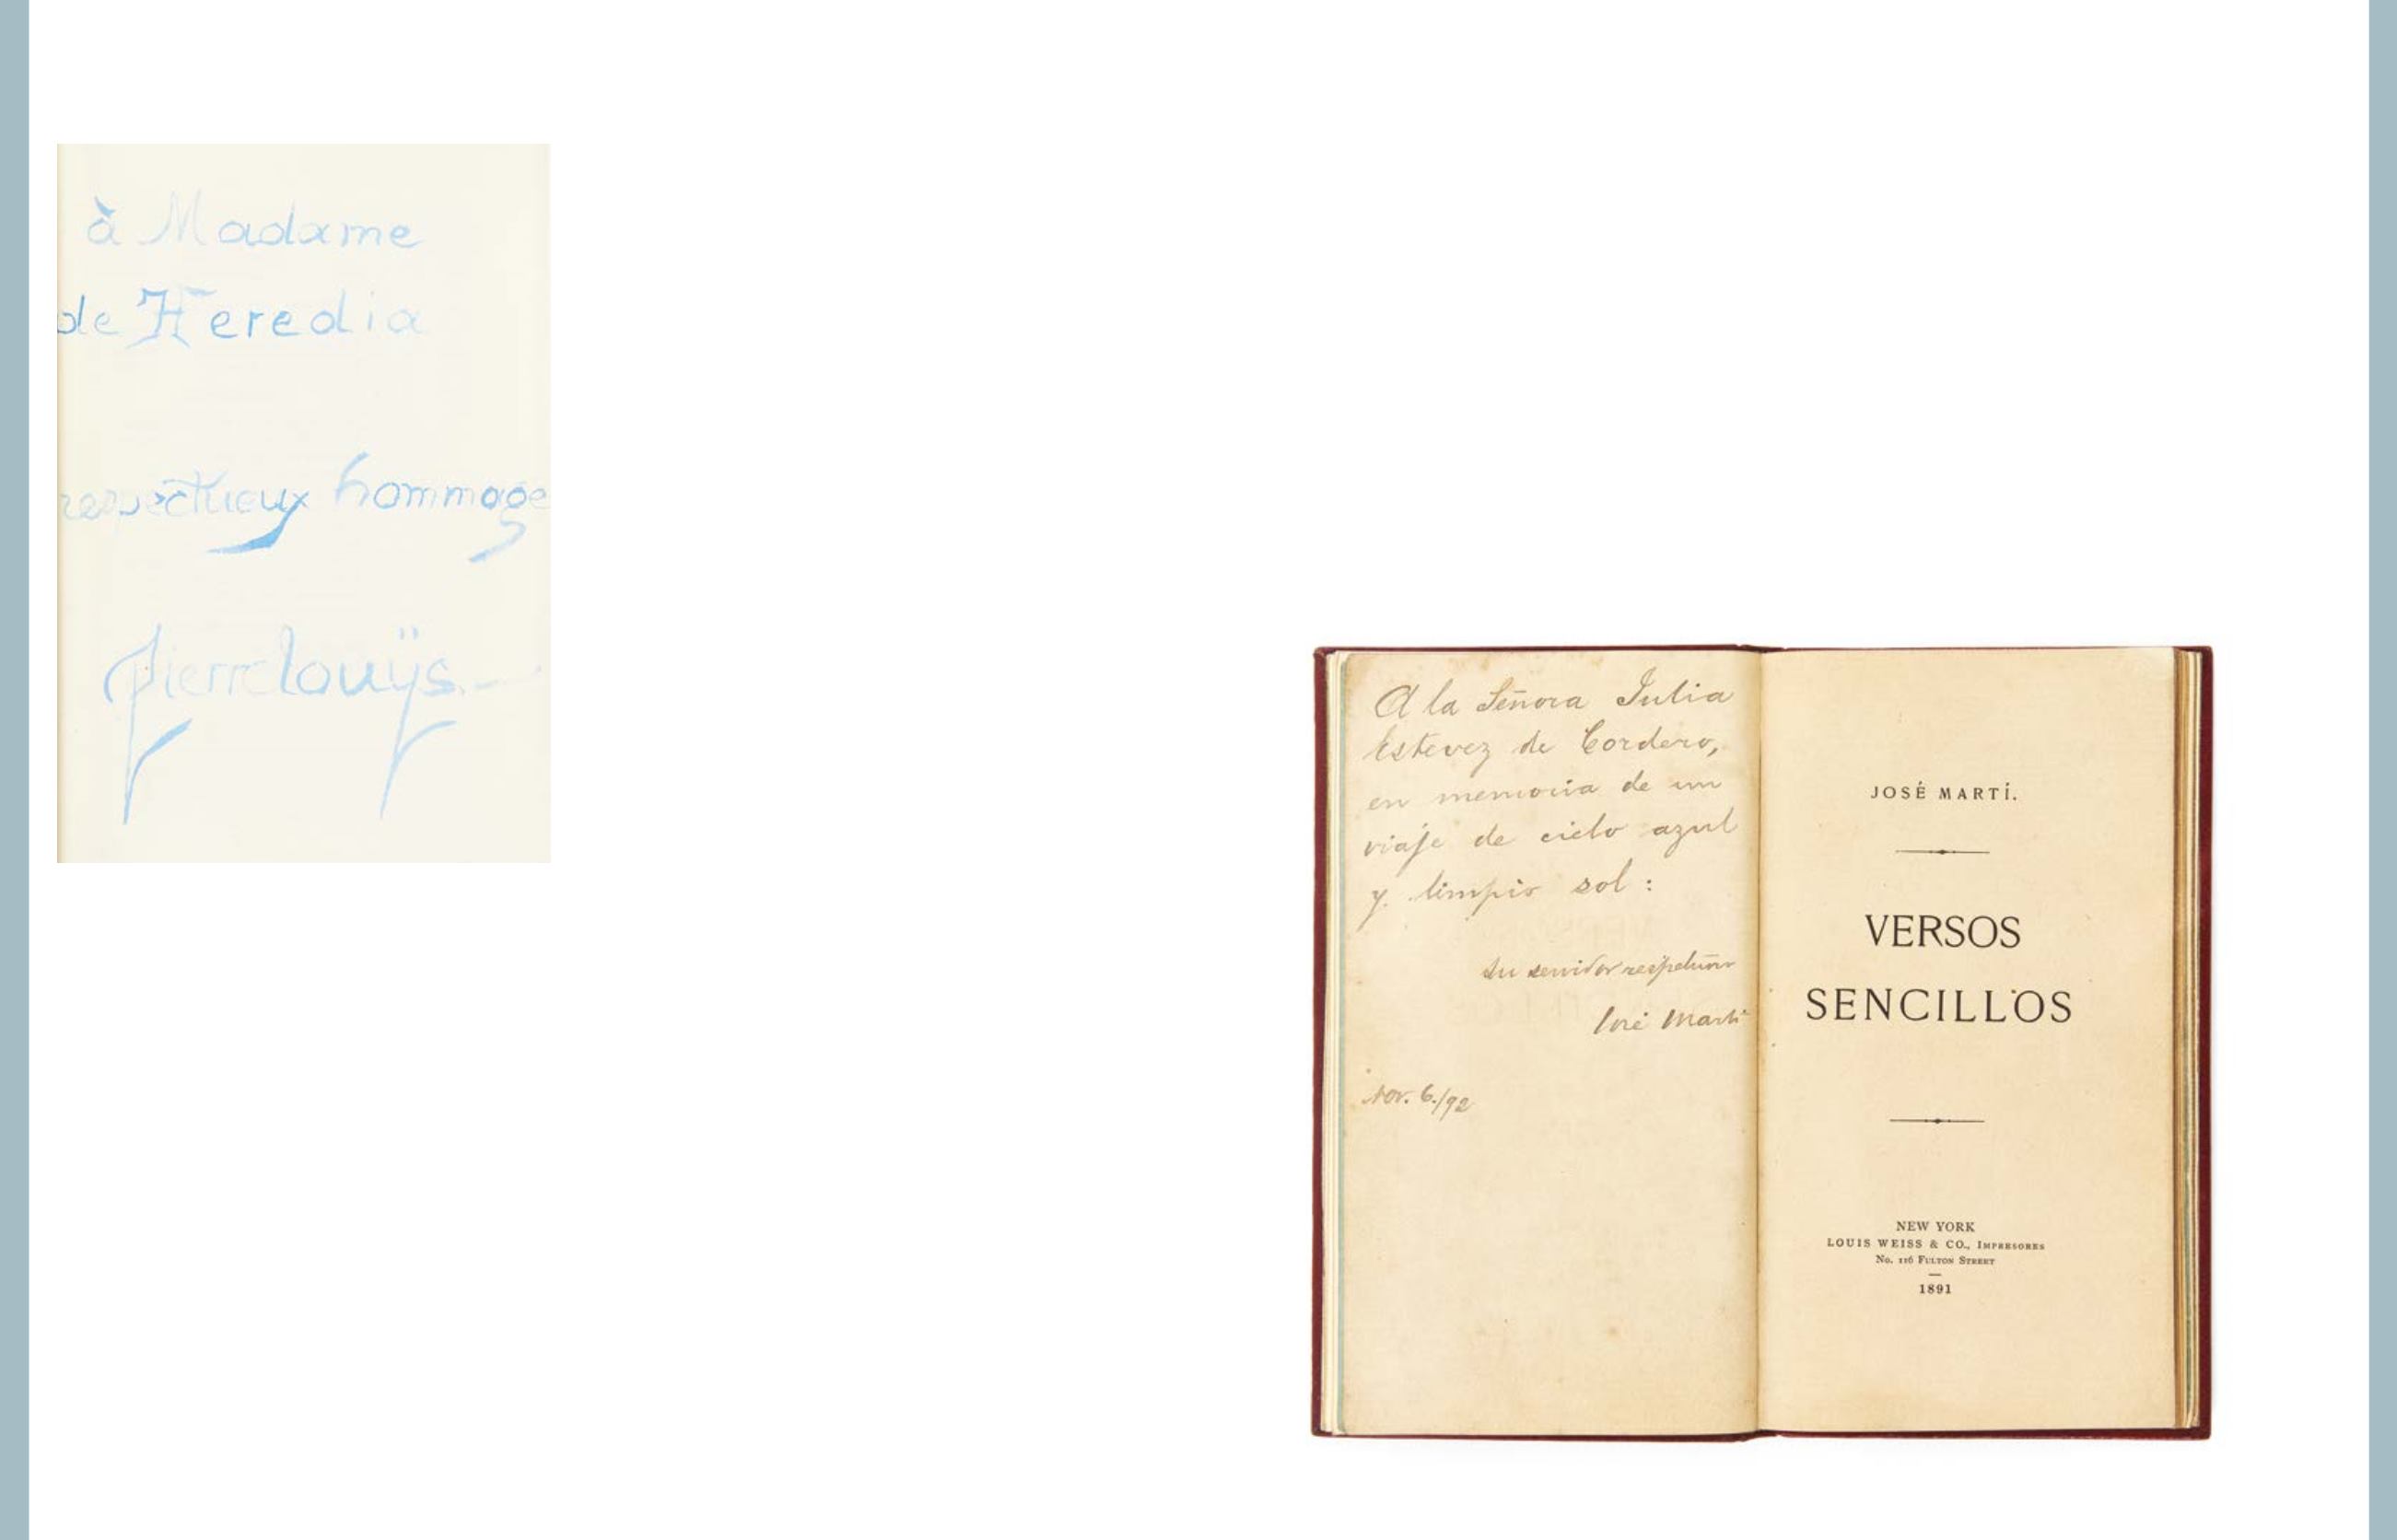 à Madame
de Heredia
respectueux hommage
Pierre Louÿs.—
A la Señora Julia
Estevez de Cordero,
en memoria de un
viaje de cielo azul
y limpio sol:
su servidor respetuoso
José Martí
Nov. 6./92
JOSÉ MARTÍ.
VERSOS
SENCILLOS
NEW YORK
LOUIS WEISS & CO., IMPRESORES
No. 116 FULTON STREET
1891